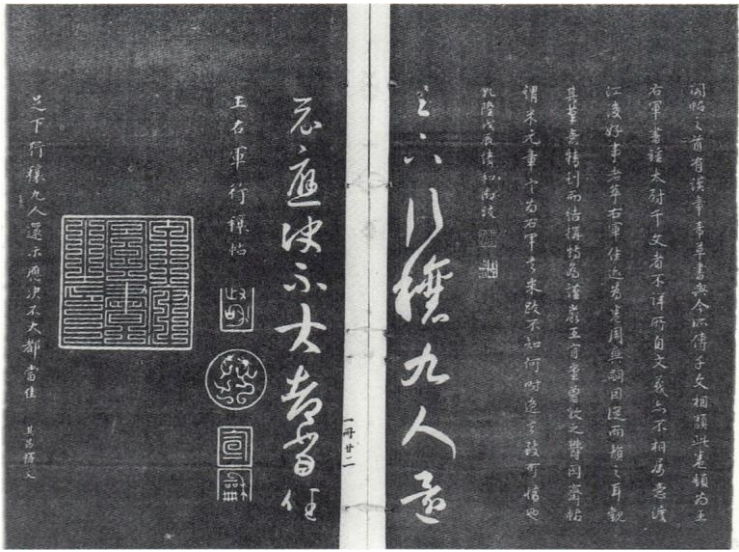 閣帖之首有漢章帝草書與今所傳千文相類此卷類為王
右軍書種太尉千文者不詳所自文義亦不相屬意渡
江後好事者萃右軍佳迹為周興嗣因而讀之耳觀
其筆意精到而結構特為謹嚴王肯堂曾之鬱岡齋帖
謂為右軍書來跋不知何時逸去可惜也
乾隆戊辰清和御跋
足下行穰九人還
一冊廿二
示應決不大都當佳
王右軍行穰帖
政和
宣龢
足下行穰九人還示應決不大都當佳 其昌釋文